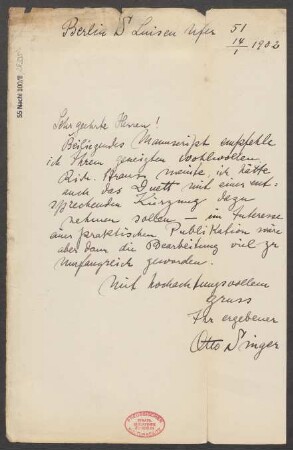 Berlin S Luisen Ufer 51
14/1 1902
Sehr geehrte Herren!
Beiliegendes Manuscript empfehle
ich Ihrem geneigten Wohlwollen.
Rich. Strauss meinte, ich hätte
auch das Duett mit einer ent-
sprechenden Kürzung dazu
nehmen sollen – im Interesse
einer praktischen Publikation wäre
aber dann die Bearbeitung viel zu
umfangreich geworden.
Mit hochachtungsvollem
Gruss
Ihr ergebener
Otto Singer
55 Nachl 100/B